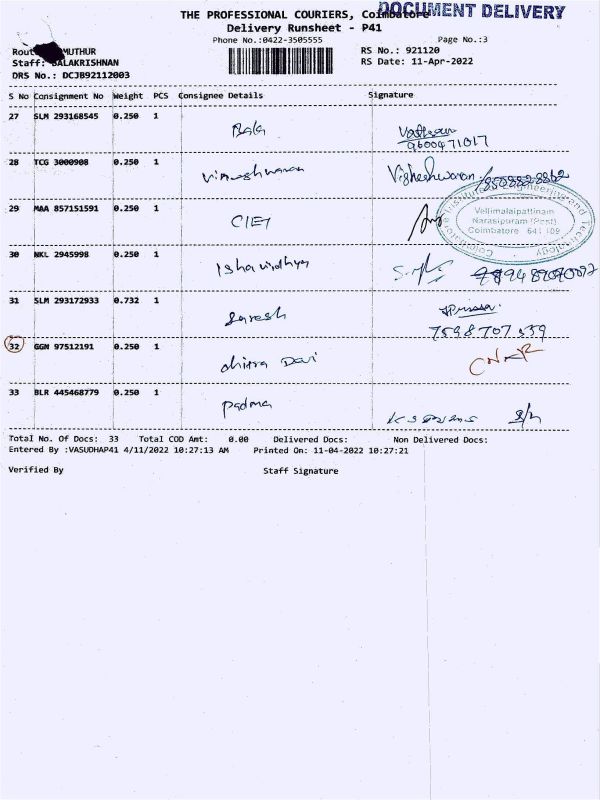 DOCUMENT DELIVERY
THE PROFESSIONAL COURIERS, Coimbatore
Delivery Runsheet - P41
Phone No.:0422-3505555 Page No.:3
MUTHUR RS No.: 921120
Staff: BALAKRISHNAN RS Date: 11-Apr-2022
DRS No.: DCJB92112003
S No Consignment No Weight PCS Consignee Details Signature
27 SLM 293168545 0.250 1 Bala
9600471017
28 TCG 3000908 0.250 1 Vigneshwaran
29 MAA 857151591 0.250 1 CIET
Coimbatore Institute of Engineering and Technology
Vellimalaipattinam
Narasipuram (Post)
Coimbatore 641 109
30 NKL 2945998 0.250 1 Isha vidhya
31 SLM 293172933 0.732 1 Suresh
7598707539
32 GGN 97512191 0.250 1 chitra Devi
33 BLR 445468779 0.250 1 Padma
Total No. Of Docs: 33 Total COD Amt: 0.00 Delivered Docs: Non Delivered Docs:
Entered By :VASUDHAP41 4/11/2022 10:27:13 AM Printed On: 11-04-2022 10:27:21
Verified By Staff Signature